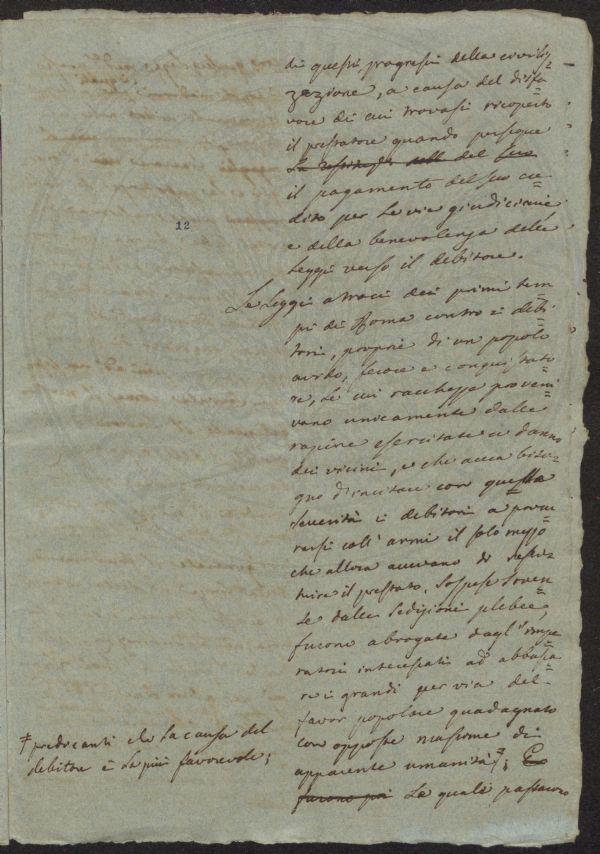 12
di questi progressi della civili=
zazione, a causa del disfa=
vore di cui trovasi ricoperto
il prestatore quando persegue
del suo
il pagamento del suo cre=
dito per le vie giudiciarie,
e della benevolenza delle
leggi verso il debitore.
Le leggi atroci dei primi tem
pi di Roma contro i debi
tori, proprie di un popolo
avido, feroce e conquistato
re, le cui ricchezze proveni=
vano unicamente dalle
rapine esercitate a danno
dei vicini, e che avea biso=
gno d'incitare con questa
severità i debitori a procu
rarsi coll'armi il solo mezzo
che allora avevano di resti=
tuire il prestato. Sospese soven
te dalle sedizioni plebee,
furono abrogate dagl'impe
ratori interessati ad abbassa
re i grandi per via del
favor popolare guadagnato
con opposte massime di
apparente umanità ‡; E
furono poi le quali passarono
‡ predicanti che la causa del
debitore è la più favorevole;